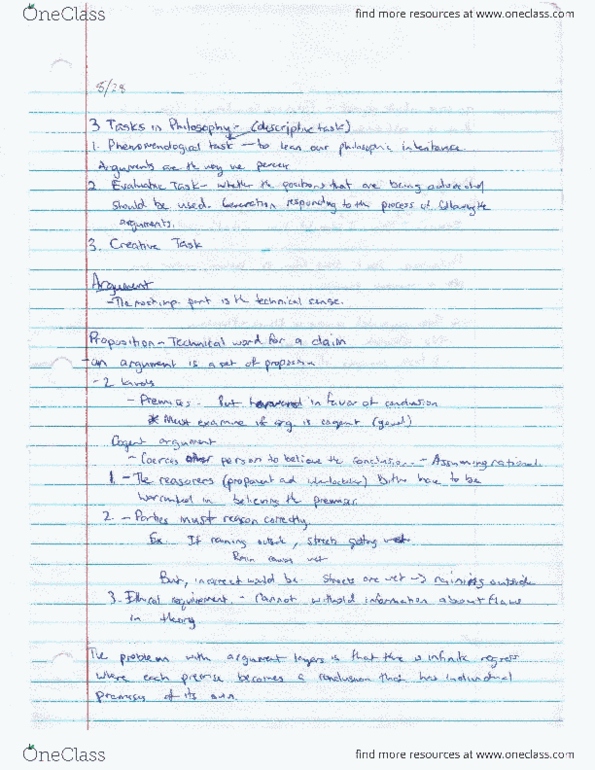 OneClass
find more resources at www.oneclass.com
8/28
3 Tasks in Philosophy - (descriptive task)
1. Phenomenological task - to learn our philosophic inheritance.
Arguments are the way we
2. Evaluative Task - whether the positions that are being advocated
should be used. Generation responding to the process of the
arguments.
3. Creative Task
Argument
- The most imp. part is the technical sense.
Proposition - Technical word for a claim
- an argument is a set of proposition
- 2 kinds
- Premises - Put in favor of conclusion
* Must examine if arg. is cogent (good)
Cogent argument
- Coerces other person to believe the conclusion. - Assuming rational.
1. - The reasoners (proponent and interlocutor) both have to be
warranted in believing the premises.
2. - Parties must reason correctly.
Ex. If raining outside, streets getting wet
Rain wet
But, incorrect would be streets are wet -> raining outside
3. Ethical requirement. - Cannot withold information about flaws
in theory
The problem with argument layers is that there is infinite regress
where each premise becomes a conclusion that has individual
premises of its own.
OneClass
find more resources at www.oneclass.com